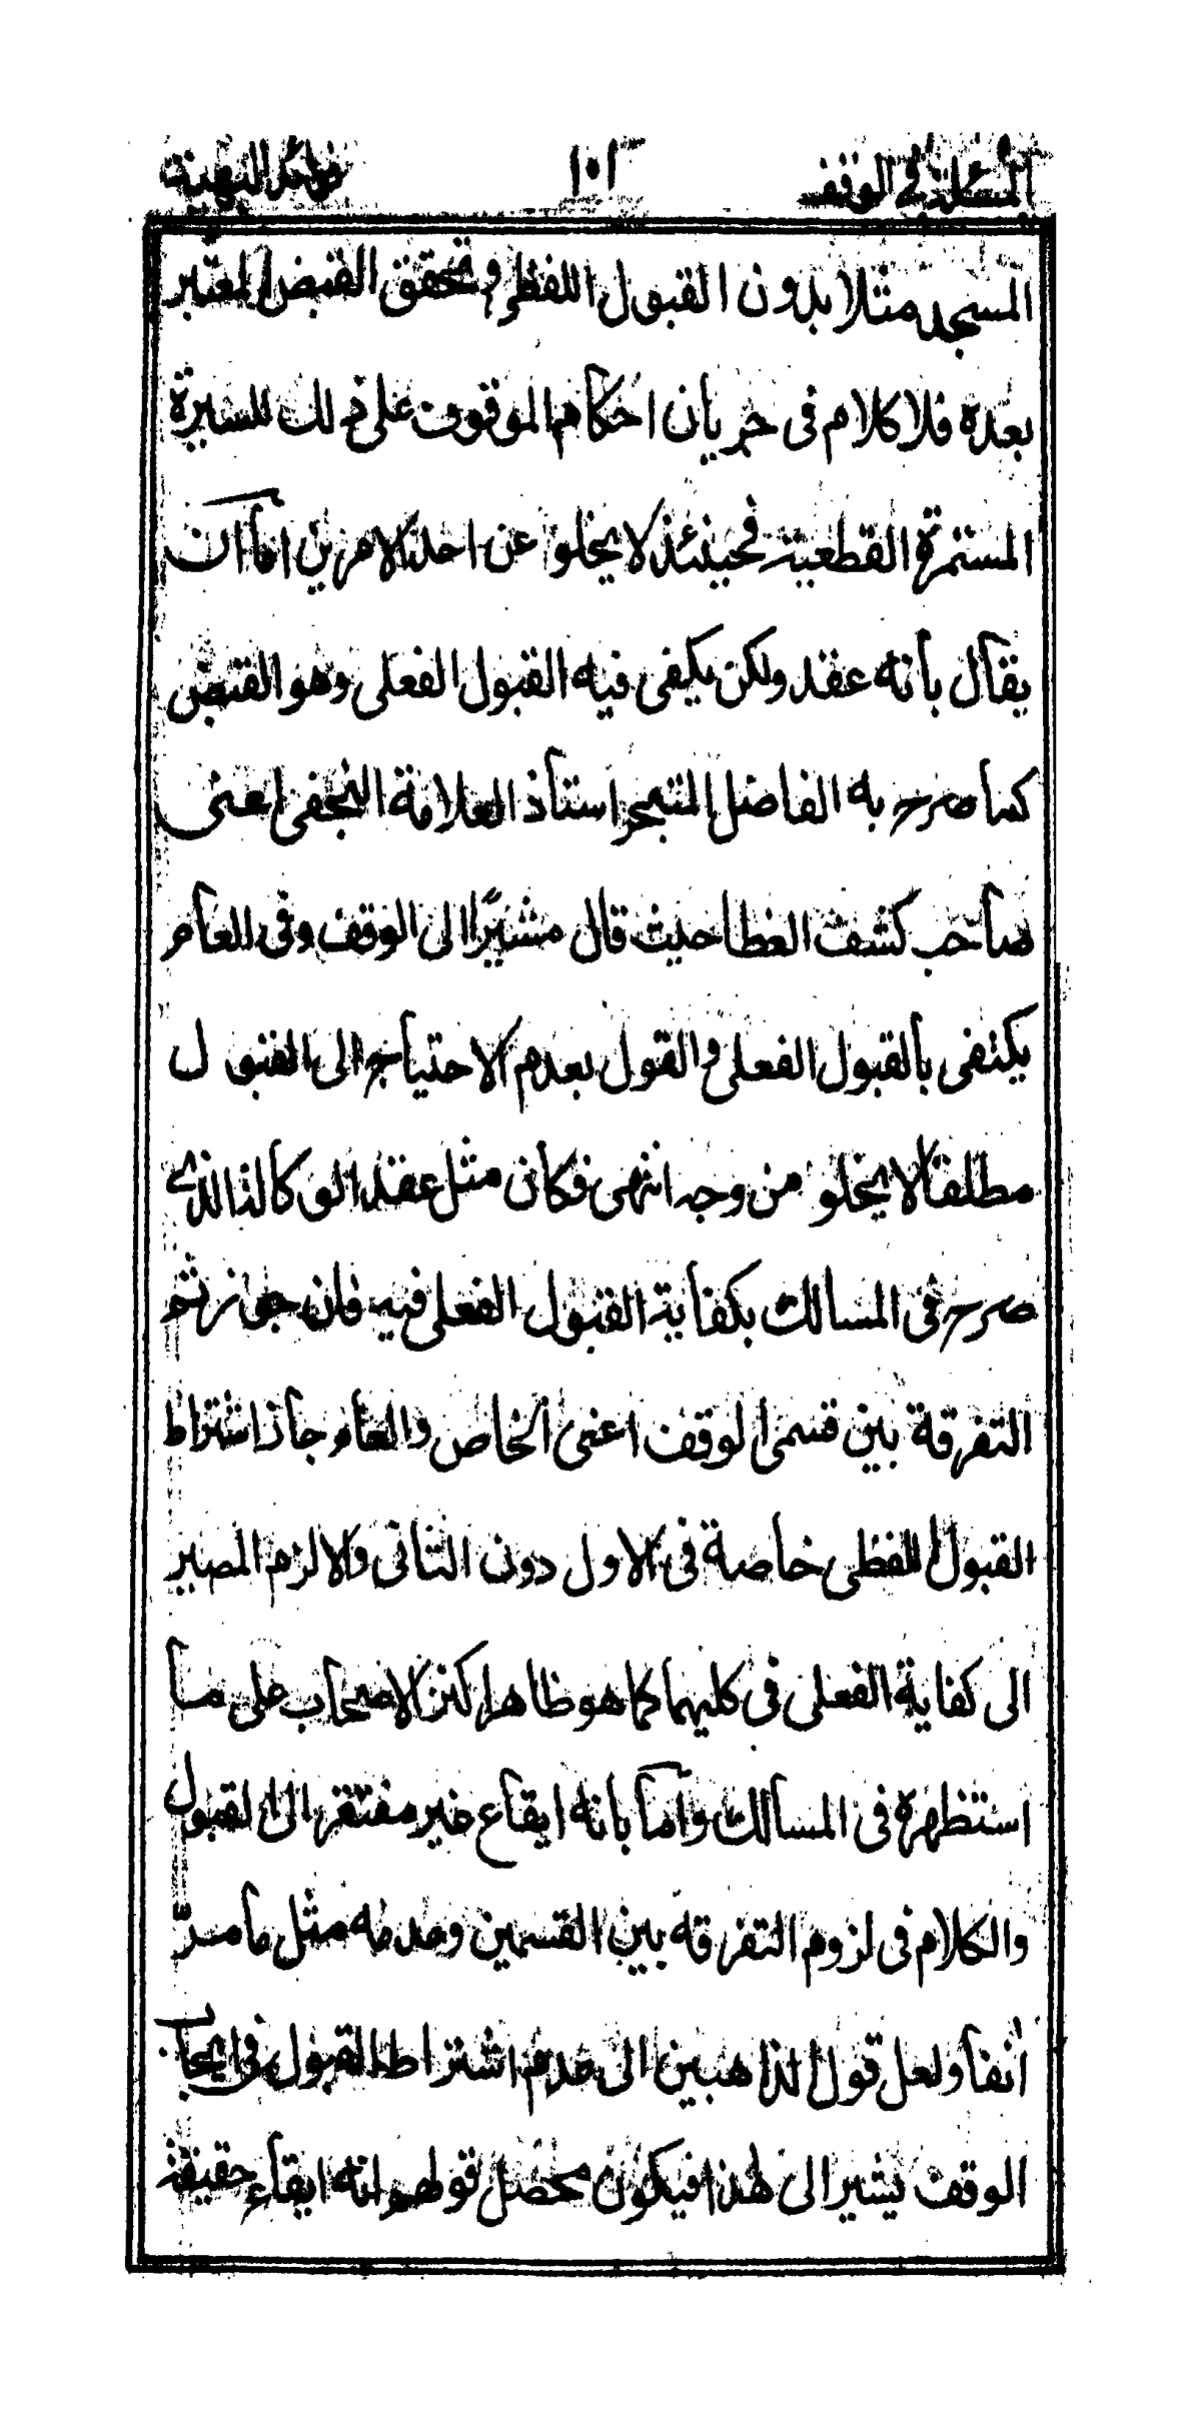 المسئلة فى الوقف ١٠١ فوائد البهية
المسجد مثلا بدون القبول اللفظى وتحقق القبض المعتبر
بعده فلا كلام فى جريان احكام الموقوف على ذلك للسيرة
المستمرة القطعية فحينئذ لا يخلو عن احد الامرين اما ان
يقال بانه عقد ولكن يكفى فيه القبول الفعلى وهو القبض
كما صرح به الفاضل المتبحر استاذ العلامة النجفى اعنى
صاحب كشف الغطا حيث قال مشيرًا الى الوقف وفى العام
يكتفى بالقبول الفعلى والقول بعدم الاحتياج الى القبول
مطلقا لا يخلو من وجه انتهى فكان مثل عقد الوكالة الذى
صرح فى المسالك بكفاية القبول الفعلى فيه فان جوزتم
التفرقة بين قسمى الوقف اعنى الخاص والعام جاز اشتراط
القبول اللفظى خاصة فى الاول دون الثانى والا لزم المصير
الى كفاية الفعلى فى كليهما كما هو ظاهر اكثر الاصحاب على ما
استظهره فى المسالك واما بانه ايقاع غير مفتقر الى القبول
والكلام فى لزوم التفرقه بين القسمين وعدمه مثل ما مرّ
انفا ولعل قول الذاهبين الى عدم اشتراط القبول فى ايجاب
الوقف يشير الى هذا فيكون محصل قولهم انه ايقاع حقيقة